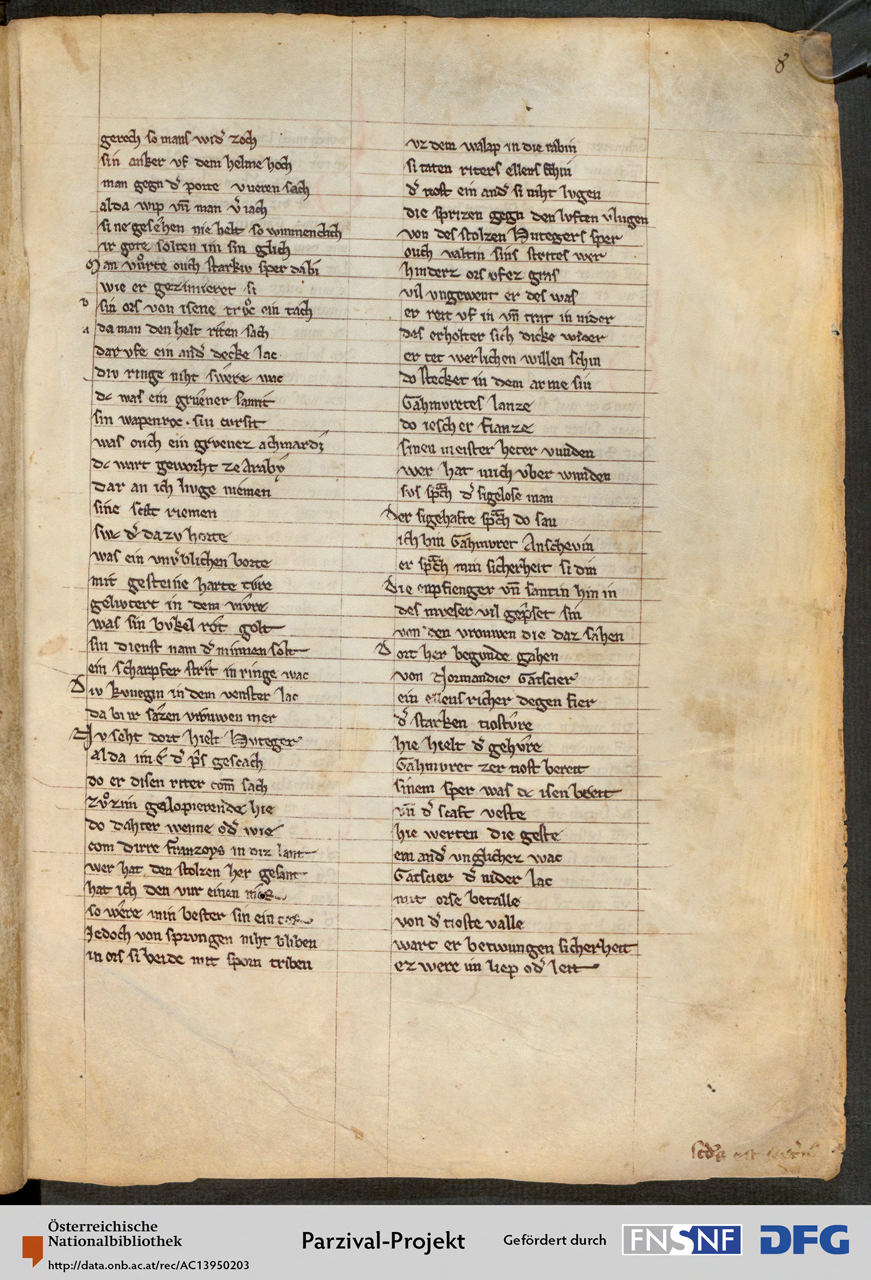 8
geroch so mans wid̕ zoch
sin anker vf dem helme hoch
man gegn d̕ porte vueren sach
alda wip vn̄ man v̕iach
si ne gesehen nie helt so wunnenchlich
ir gote solten im sin glich
Man vůrte ouch starkiv sper da bi
wie er gezimieret si
b sin ors von isene trůc ein tach
a da man den helt riten sach
dar vfe ein and̕ decke lac
div ringe niht swere wac
dc was ein gruener samit
sin wapenroc. sin cursit
was ouch ein gruenez achmardi
dc wart geworht ze Araby
dar an ich livge niemen
sine scilt riemen
swc d̕ da zv horte
was ein vnv̕blichen borte
mit gesteine harte tvre
gelivtert in dem vivre
was sin bvkel rot golt
sin dienst nam d̕ minnen solt
ein scharpfer strit in ringe wac
Div kvnegin in dem venster lac
da bi ir sazen vrouwen mer
Nv seht dort hielt Hvteger
alda im e d̕ p̕s gescach
do er disen riter com̄ sach
zvͦ zim gelopierende hie
do dahter wenne od̕ wie
com dirre franzoys in diz lant
wer hat den stolzen her gesant
hat ich den vur einen
so were min bester sin ein
Jedoch von sprvngen niht bliben
in ors si beide mit sporn triben
vz dem walap in die rabin
si taten riters ellens schin
d̕ tiost ein and̕ si niht lugen
die sprizen gegn den lvften vlugen
von des stolzen Hutegers sper
ouch valtin sins strites wer
hinderz ors vfez gras
vil vngewent er des was
er reit vf in vn̄ trat in nider
des erholter sich dicke wider
er tet werlichen willen schin
do stecket in dem arme sin
Gahmuretes lanze
do iesch er fianze
sinen meister heter vunden
wer hat mich vber wunden
svs sp̕ch d̕ sigelose man
der sigehafte sp̕ch do san
ich bin Gahmuret Anschevin
er sp̕ch min sicherheit si din
Die enpfienger vn̄ santin hin in
des mveser vil gep̕set sin
von den vrouwen die daz sahen
Dort her begvnde gahen
von Normandie Gatscier
ein ellens richer degen fier
d̕ starken tiosture
hie hielt d̕ gehvre
Gahmuret zer tiost bereit
sinem sper was dc isen breit
vn̄ d̕ scaft veste
hie werten die geste
ein and̕ vnglichez wac
Gatscier d̕ nider lac
mit orse betalle
von d̕ tioste valle
wart er betwungen sicherheit
ez were im liep od̕ leit
Österreichische
Nationalbibliothek
http://data.onb.ac.at/rec/AC13950203
Parzival-Projekt
Gefördert durch
FNSNF
DFG